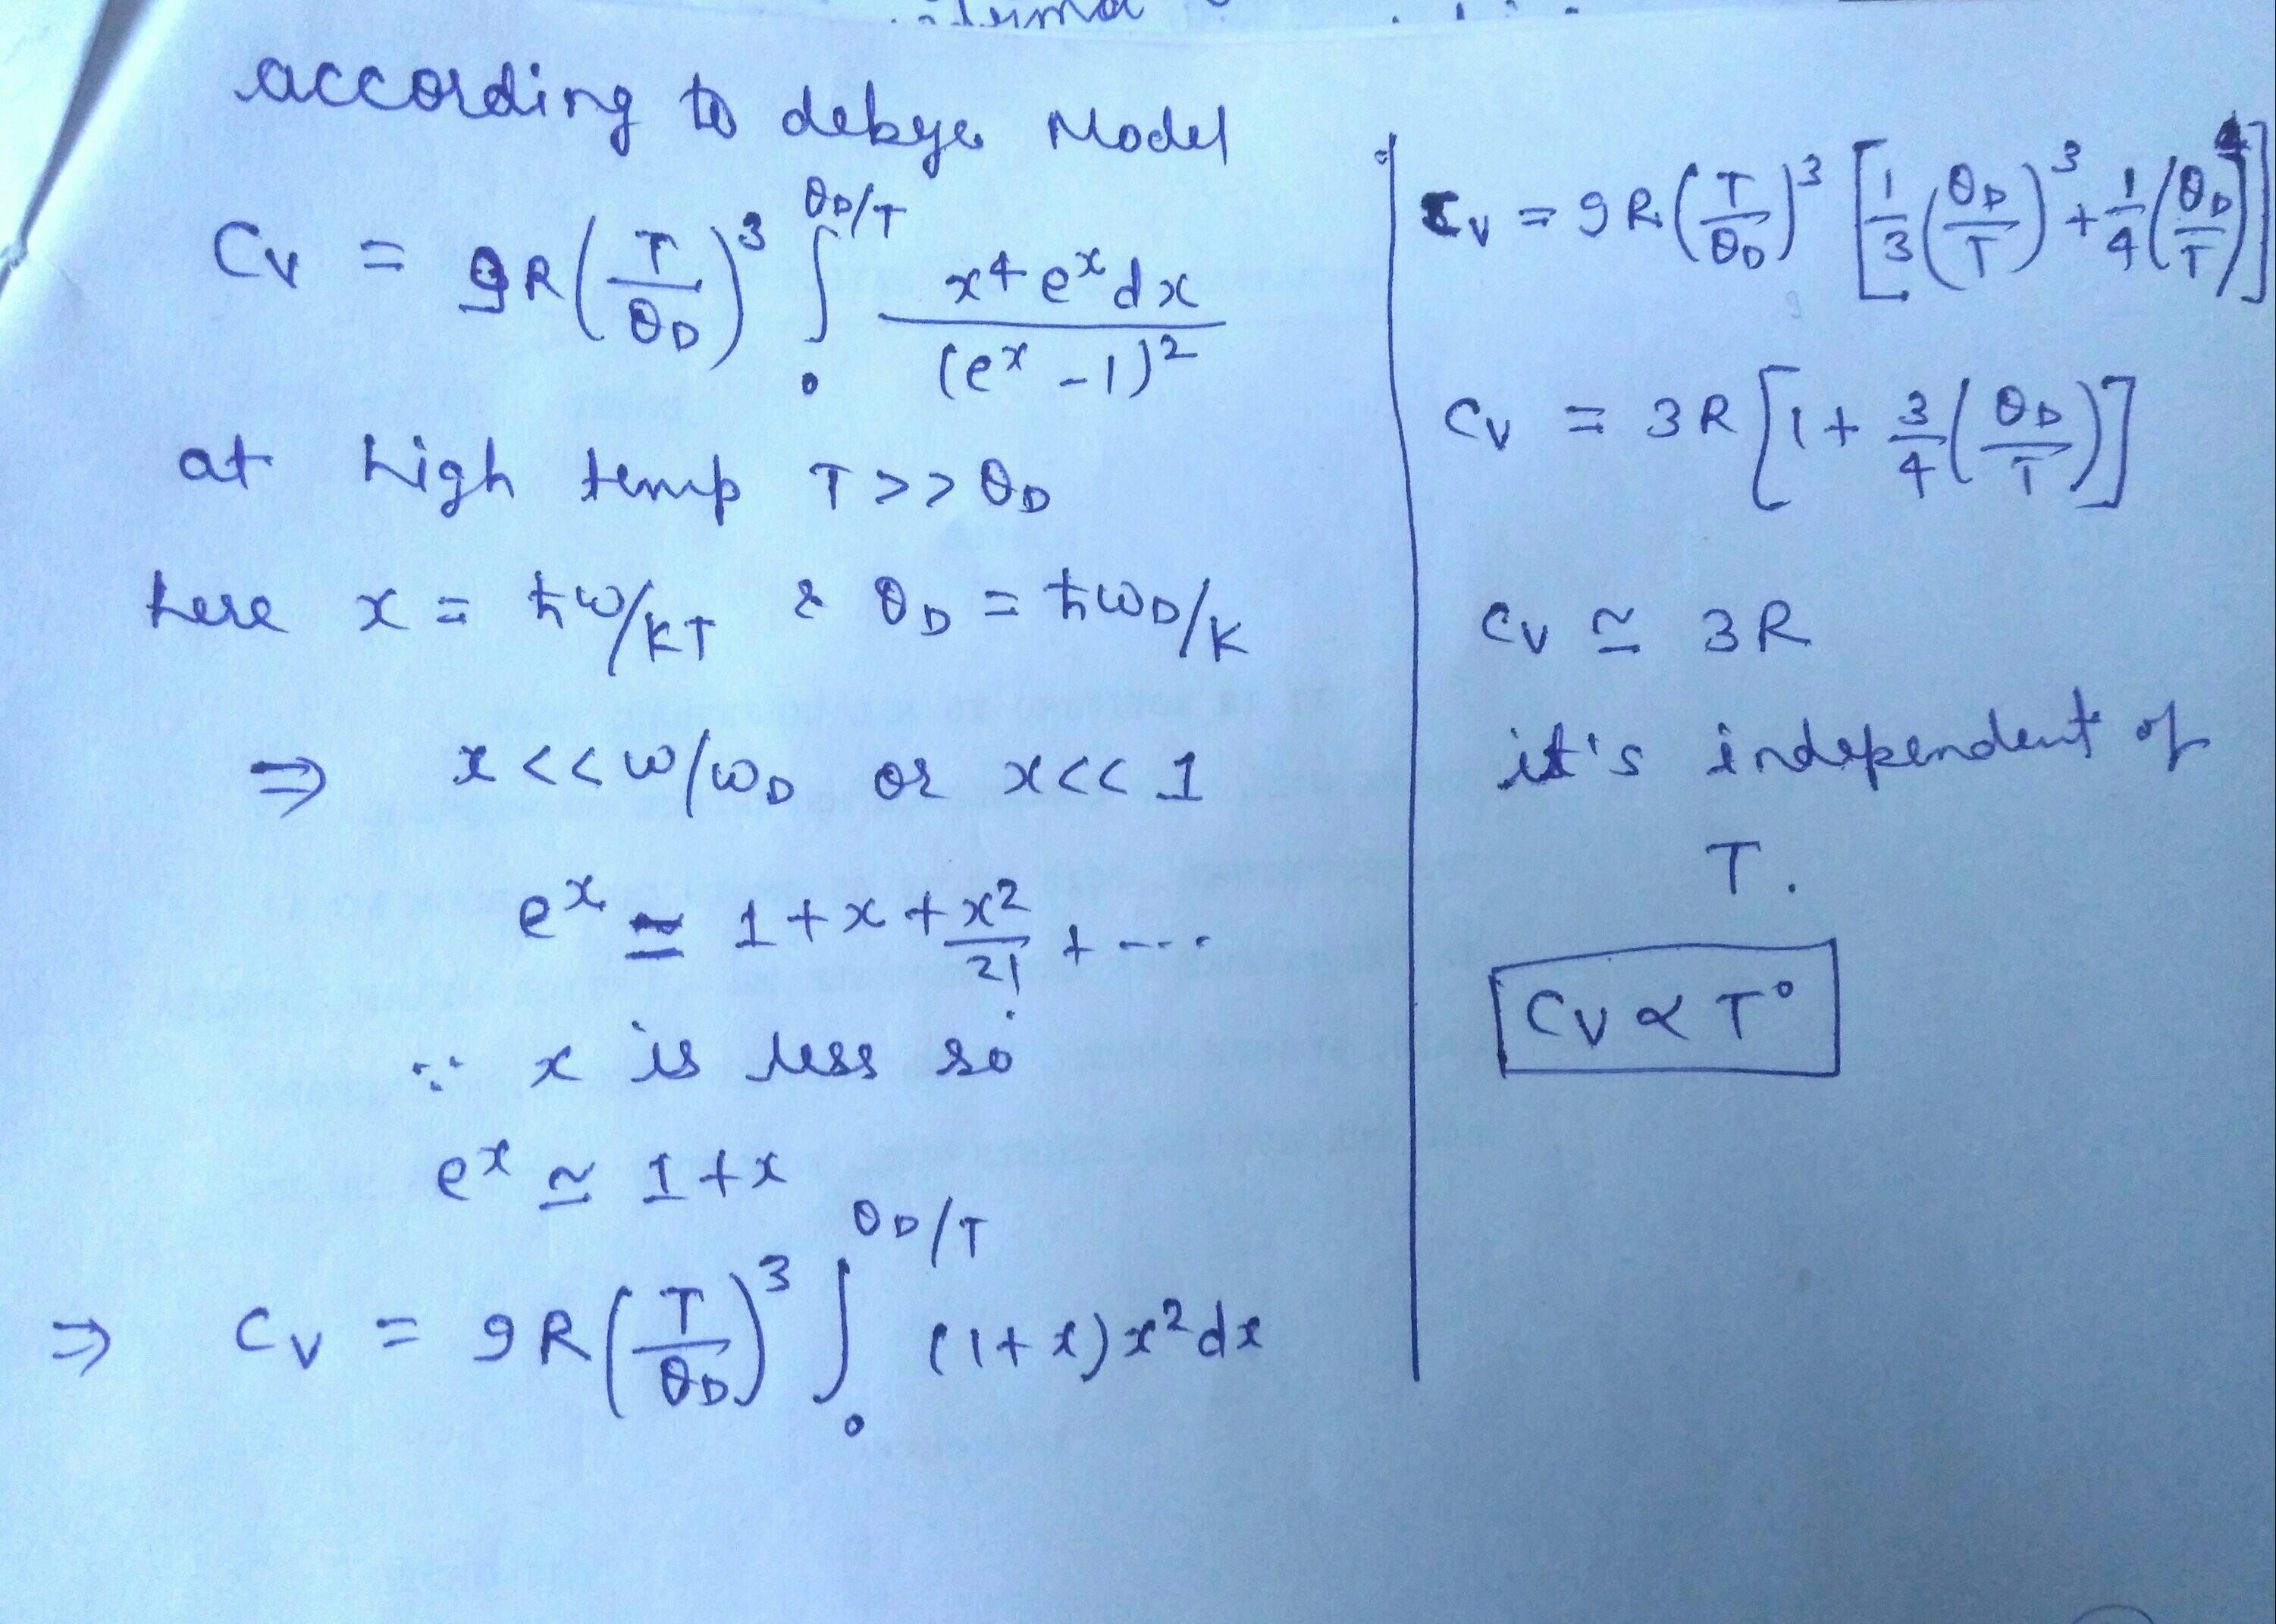 according to debye Model
Cv = 9R(T/θD)³ ∫₀^θD/T x⁴eˣdx/(eˣ-1)²
at high temp T>>θD
here x = ħω/KT & θD = ħωD/K
⇒ x<<ω/ωD or x<<1
eˣ ≃ 1+x+x²/2! + ---
∵ x is less so
eˣ ≃ 1+x
⇒ Cv = 9R(T/θD)³ ∫₀^θD/T (1+x)x²dx
Cv = 9R(T/θD)³ [1/3(θD/T)³+1/4(θD/T)⁴]
Cv = 3R[1+3/4(θD/T)]
Cv ≃ 3R
it's independent of
T.
Cv ∝ T°